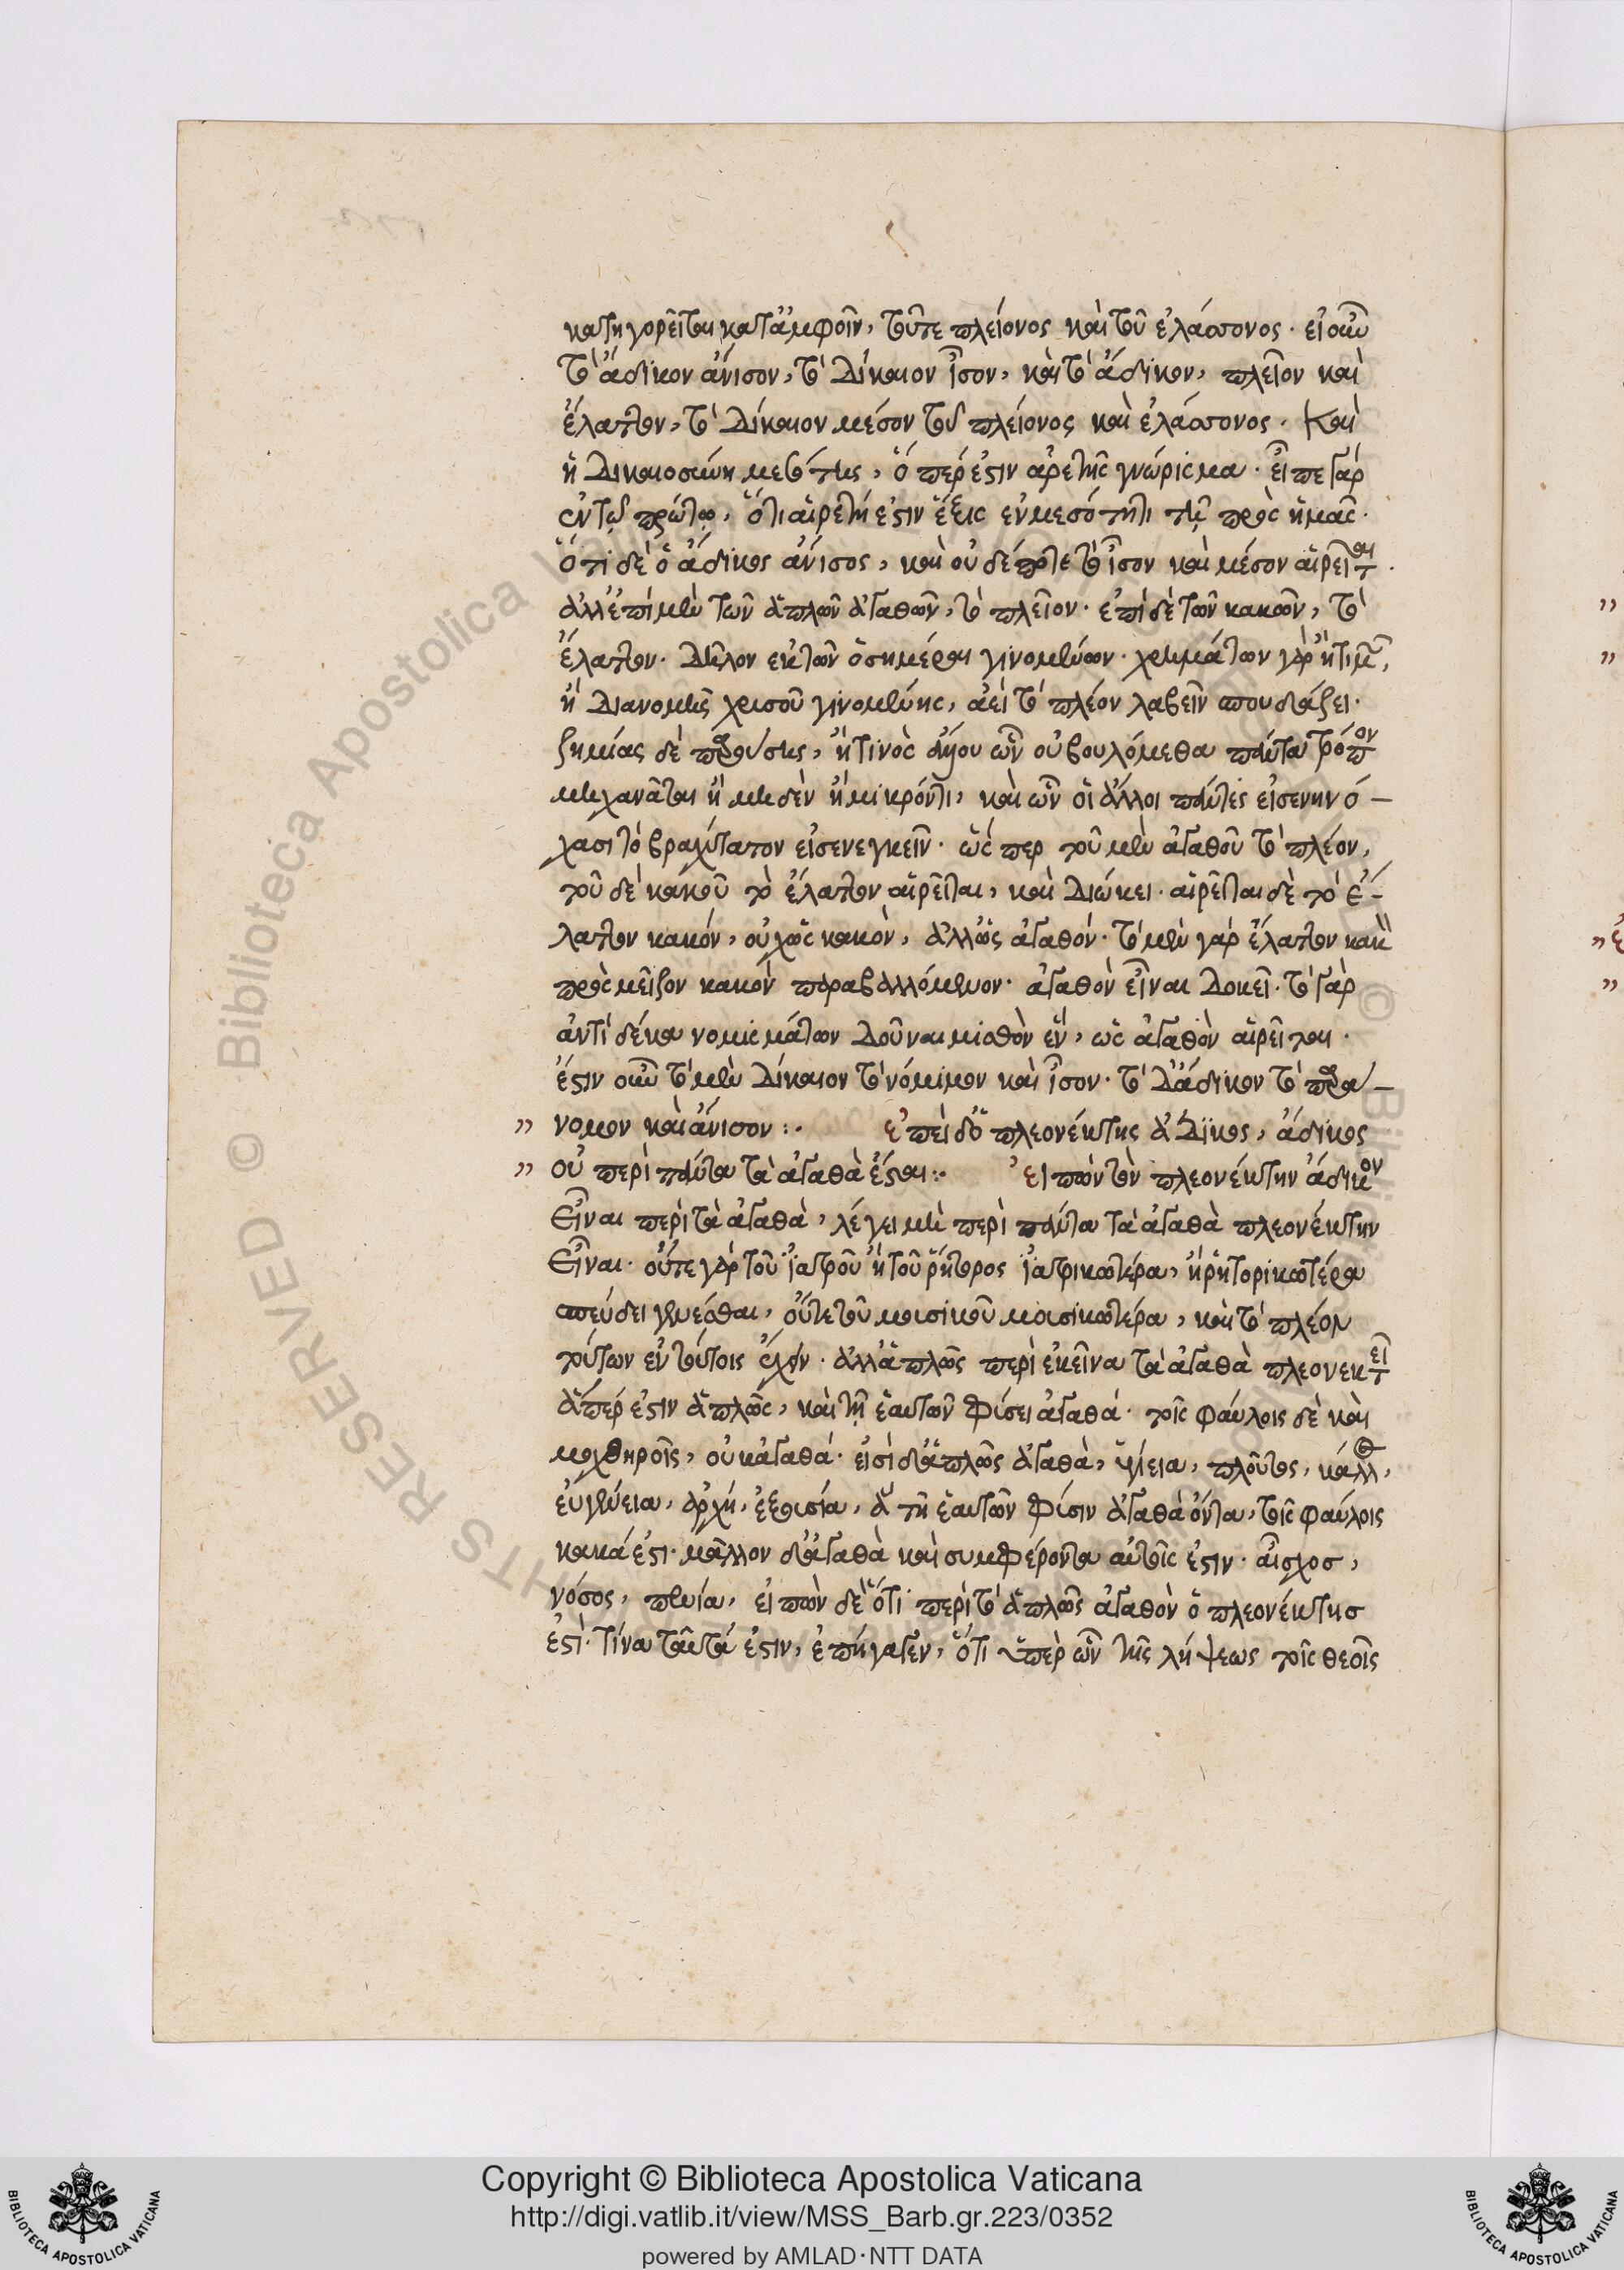 κατηγορεῖται κατ' ἀμφοῖν, τοῦτε πλείονος καὶ τοῦ ἐλάσσονος. εἰ οὖν
τὸ ἄδικον ἄνισον, τὸ δίκαιον ἴσον, καὶ τὸ ἄδικον, πλεῖον καὶ
ἔλαττον, τὸ δίκαιον μέσον τοῦ πλείονος καὶ ἐλάσσονος. Καὶ
ἡ δικαιοσύνη μεσότης, ὅπέρ ἐστιν ἀρετῆς γνώρισμα. εἶπε γάρ
ἐν τῷ πρώτῳ, ὅτι ἀρετή ἐστιν ἕξις ἐν μεσότητι τῇ πρὸς ἡμᾶς.
Ὅτι δὲ ὁ ἄδικος ἄνισος, καὶ οὐδέποτε τὸ ἴσον καὶ μέσον αἱρεῖται.
ἀλλ' ἐπὶ μὲν τῶν ἁπλῶν ἀγαθῶν, τὸ πλεῖον. ἐπὶ δὲ τῶν κακῶν, τὸ
ἔλαττον. Δῆλον ἐκ τῶν ὁσημέραι γινομένων. χρημάτων γὰρ ἢ τιμῆς,
ἢ διανομῆς χρυσοῦ γινομένης, ἀεὶ τὸ πλέον λαβεῖν σπουδάζει.
ζημίας δὲ παρούσης, ἤ τινος ἄλλου ὧν οὐ βουλόμεθα πάντα τρόπον
μηχανᾶται ἢ μηδὲν ἢ μικρόν τι, καὶ ὧν οἱ ἄλλοι πάντες εἰσενηνό-
χασι τὸ βραχύτατον εἰσενεγκεῖν. ὥσπερ τοῦ μὲν ἀγαθοῦ τὸ πλέον,
τοῦ δὲ κακοῦ τὸ ἔλαττον αἱρεῖται, καὶ διώκει. αἱρεῖται δὲ τὸ ἔ-
λαττον κακόν, οὐχ ὡς κακὸν, ἀλλ' ὡς ἀγαθόν. τὸ μὲν γὰρ ἔλαττον κακὸν
πρὸς μεῖζον κακὸν παραβαλλόμενον. ἀγαθὸν εἶναι δοκεῖ. τὸ γὰρ
ἀντὶ δέκα νομισμάτων δοῦναι μισθὸν ἓν, ὡς ἀγαθὸν αἱρεῖται.
ἔστιν οὖν τὸ μὲν δίκαιον τὸ νόμιμον καὶ ἴσον. τὸ δ' ἄδικον τὸ παρά-
νομον καὶ ἄνισον :. ἐπεὶ δ' ὁ πλεονέκτης ἄδικος, ἄδικος
οὐ περὶ πάντα τὰ ἀγαθὰ ἔσται :. εἰπὼν τὸν πλεονέκτην ἄδικον
Εἶναι περὶ τὰ ἀγαθὰ, λέγει μὴ περὶ πάντα τὰ ἀγαθὰ πλεονέκτην
Εἶναι. οὔτε γὰρ τοῦ ἰατροῦ ἢ τοῦ ῥήτορος ἰατρικώτερα, ἢ ῥητορικώτερα
σπεύδει γενέσθαι, οὔτε τοῦ μουσικοῦ μουσικώτερα, καὶ τὸ πλέον
τούτων ἐν τούτοις ἔχειν. ἀλλ' ἁπλῶς περὶ ἐκεῖνα τὰ ἀγαθὰ πλεονεκτεῖ
ἅπερ ἐστιν ἁπλῶς, καὶ τῇ ἑαυτῶν φύσει ἀγαθά. τοῖς φαύλοις δὲ καὶ
μοχθηροῖς, οὐκ ἀγαθά. εἰσὶ δ' ἁπλῶς ἀγαθὰ, ὑγίεια, πλοῦτος, κάλλος,
εὐγένεια, ἀρχή, ἐξουσία, ἃ τὴν ἑαυτῶν φύσιν ἀγαθὰ ὄντα, τοῖς φαύλοις
κακά ἐστι. μᾶλλον δ' ἀγαθὰ καὶ συμφέροντα αὐτοῖς ἐστιν. αἶσχος,
νόσος, πενία, εἰπὼν δὲ ὅτι περὶ τὸ ἁπλῶς ἀγαθὸν ὁ πλεονέκτης
ἐστὶ. τίνα ταῦτά ἐστιν, ἐπήγαγεν, ὅτι ὑπὲρ ὧν τῆς λήψεως τοῖς θεοῖς
Copyright © Biblioteca Apostolica Vaticana
http://digi.vatlib.it/view/MSS_Barb.gr.223/0352
powered by AMLAD·NTT DATA